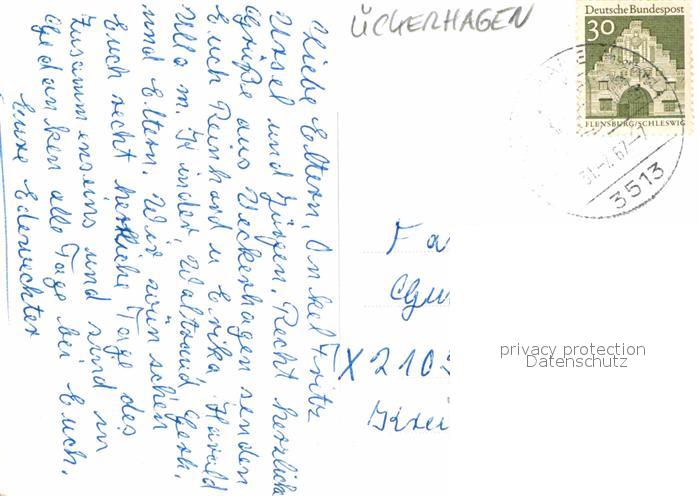 ÜCKERHAGEN
Deutsche Bundespost
30
FLENSBURG/SCHLESWIG
31.-7.67-7
3513
Liebe Eltern, Onkel Fritz
Ursel und Jürgen. Recht herzliche
Grüße aus Veckerhagen senden
Euch Reinhard u Erika, Harald
Ulla m. Kinder, Waltraud, Gerh.
und Eltern. Wir wünschen
Euch recht herrliche Tage des
Zusammenseins und sind in
Gedanken alle Tage bei Euch.
Eure Ederwechter
Fa
X 210
Krei
privacy protection
Datenschutz